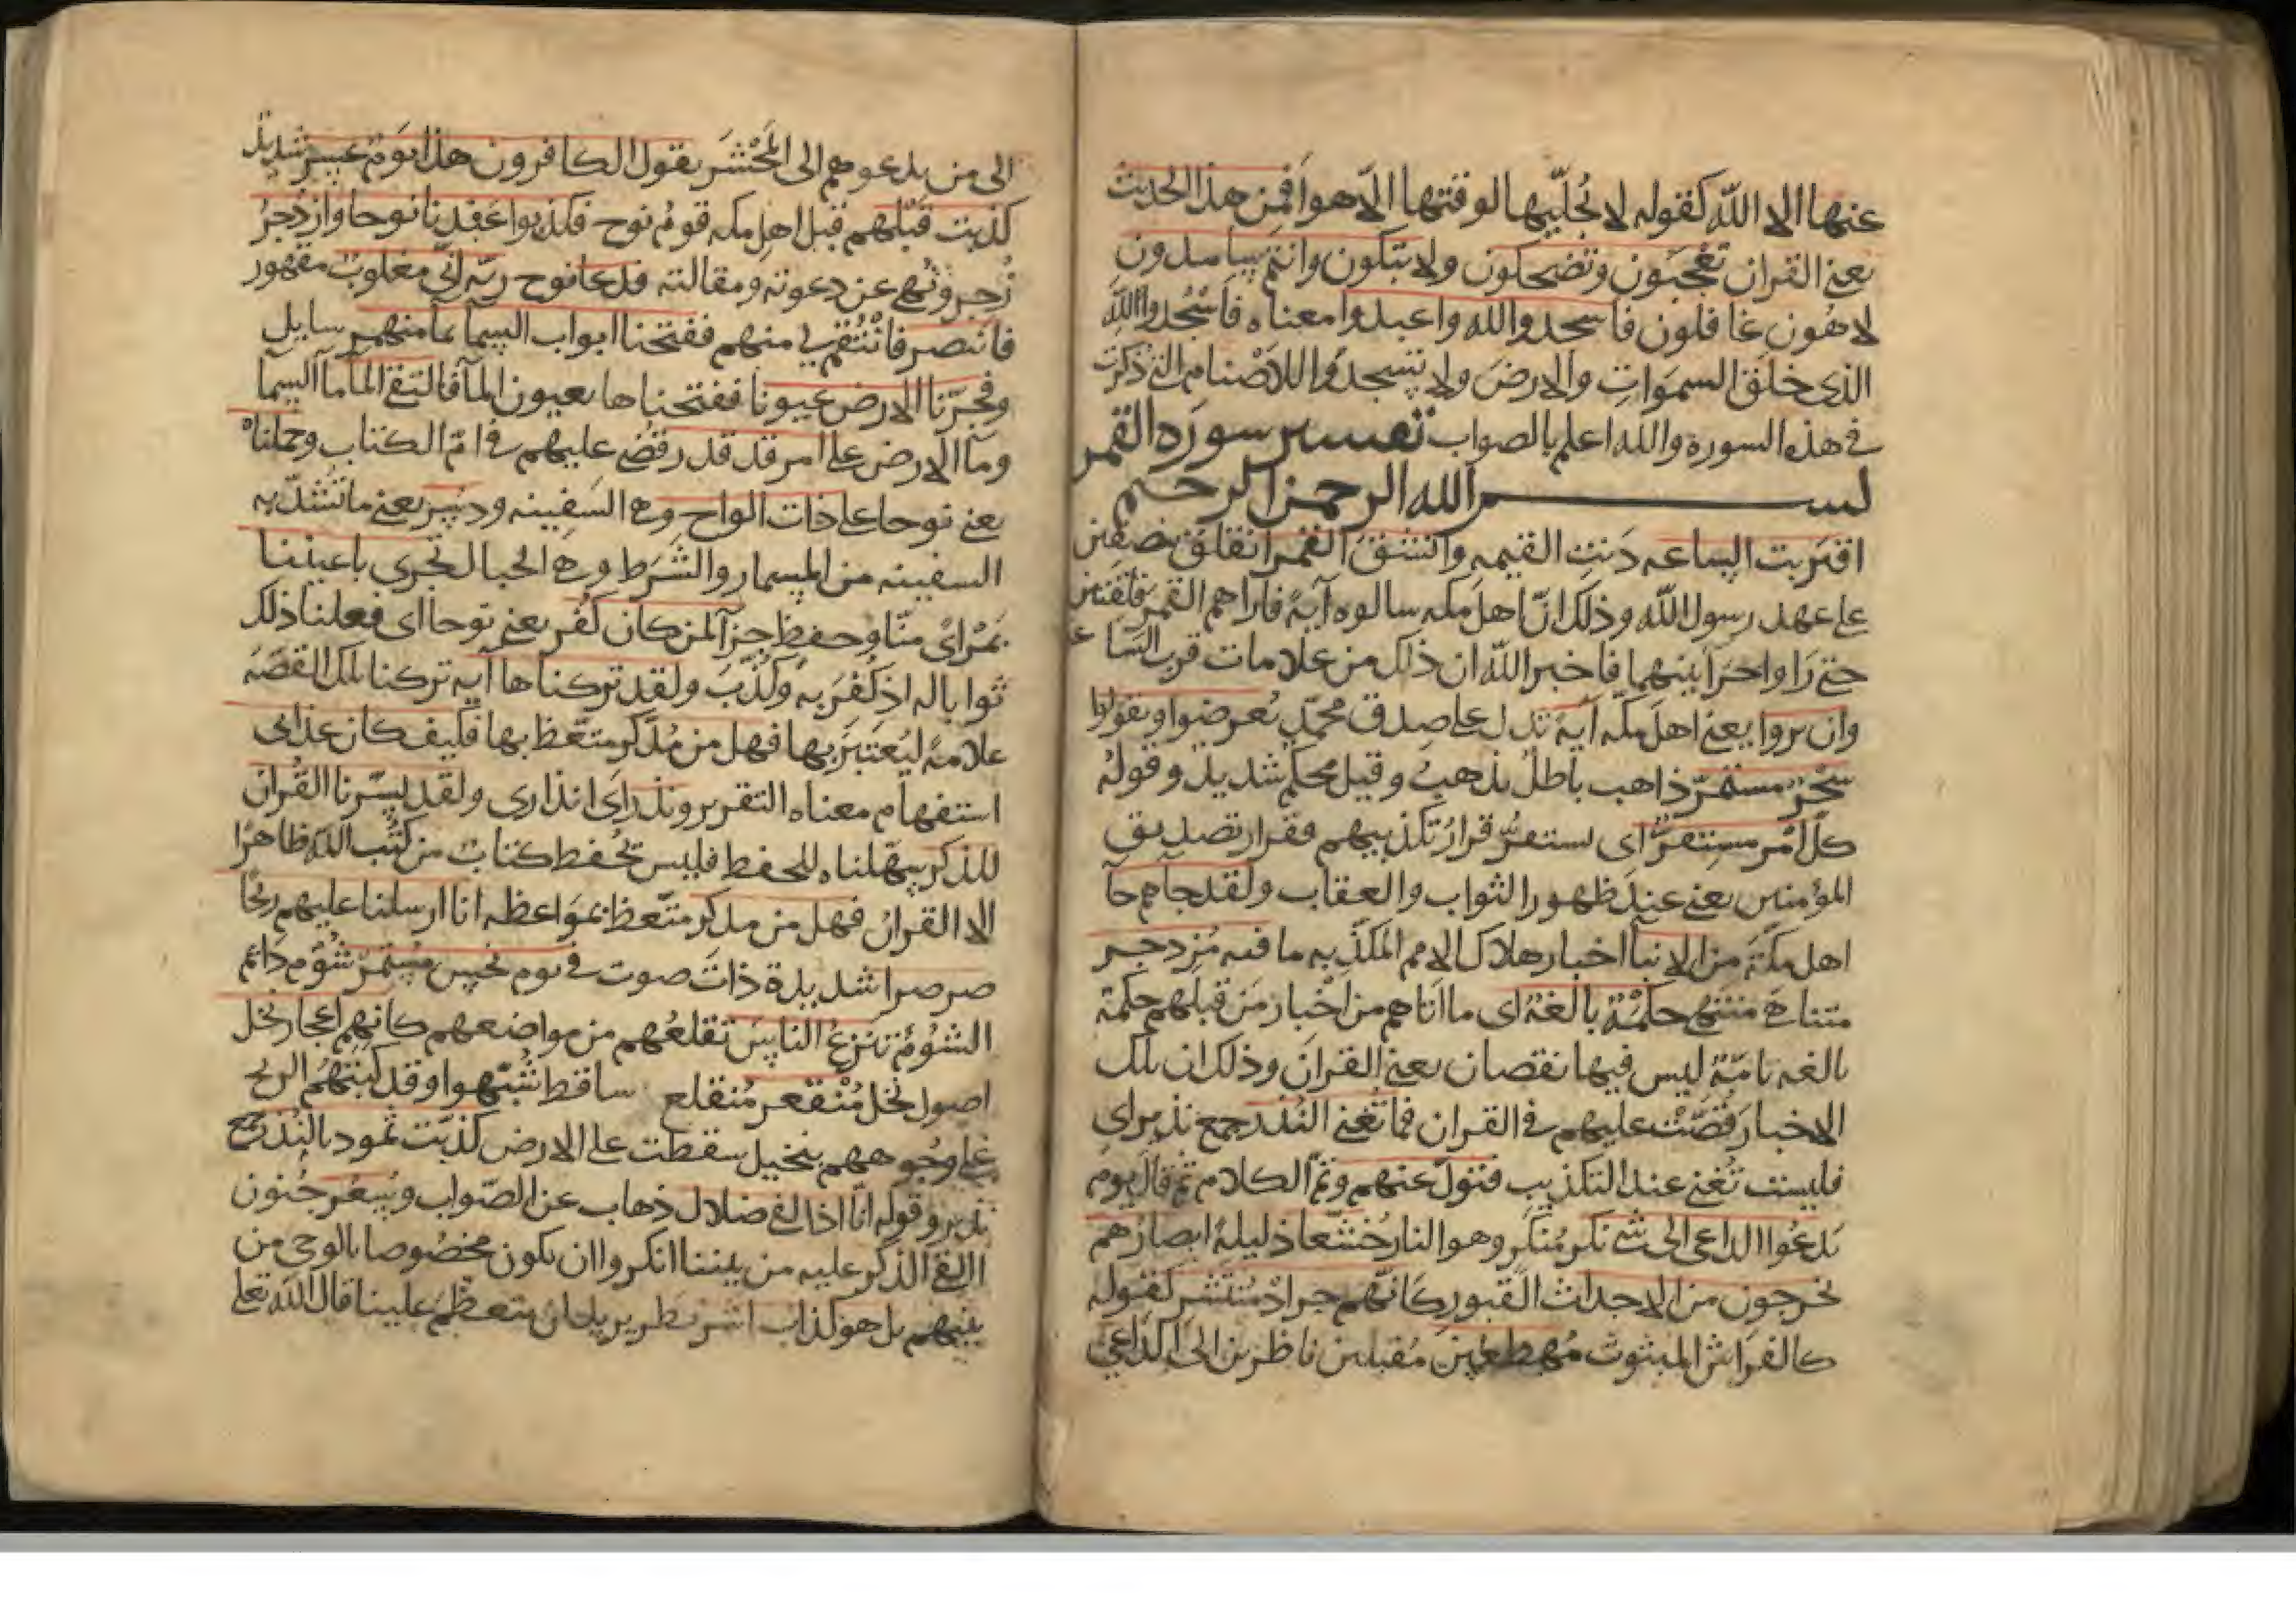 عنها الا الله كقوله لا يُجلّيها لوقتها الّا هو افمن هذا الحديث
يعني القران تعجبون وتضحكون ولا تبكون وانتم سامدون
لاهون غافلون فاسجدوا لله واعبدوا معناه فاسْجُدوا لله
الذى خلق السموات والارض ولا تسجدوا للاصنام التى ذكرت
فى هذه السورة والله اعلم بالصواب تفسير سورة القمر
بسم الله الرحمن الرحيم
اقتربت الساعه دَنت القيمه وانشق القمر انفلق نصفين
على عهد رسول الله وذلك انّ اهل مكه سالوه آيةً فاراهم القمر فلقتين
حتى رَاوا حرَآ بينهما فاخبر الله ان ذلك من علامات قرب الساعة
وان يروا يعنى اهل مكّه آيةً تدل على صدق محمّدٍ يُعرضوا ويقولوا
سِحْرٌ مستمرّ ذاهب باطلٌ يذهبُ وقيل محكم شديد وقوله
كلّ امْر مستقرّ اى يستقرُّ قرارُ تكذيبهم وقرار تصديق
المؤمنين يعنى عندَ ظهور الثواب والعقاب ولقد جاهم جآ
اهل مكّةَ من الانبآ اخبار هلاك الامم المكذّبه ما فيه مُزدجر
متناهَى منتهى حكمْةٌ بالغةٌ اى ما اتاهم من اخبار مَن قبلهم حكمة
بالغه تامّةٌ ليس فيها نقصان يعنى القران وذلك ان تلك
الاخبارَ قُصَّتْ عليهم فى القران فما تُغنى النُذُر جمع نذير اى
فليست تُغنى عند التكذيب فتولّ عنهم وتمّ الكلام ثم قال يوم
يَدعُوا الداعى الى شى نكر مُنكَرٍ وهو النار خُشّعا ذليلةً ابصارُهم
يخرجون من الاجداث القبور كانّهم جرادٌ مُنتشر كقوله
كالفراش المبثوث مُهطعين مُقبلين ناظرين الى الداعى
الى من يدعوهم الى المَحْشَر يقول الكافرون هذا يَومٌ عسِرٌ شديد
كذبت قَبْلهم قبل اهل مكه قومُ نوح فكذبوا عَبْدنا نوحا وازدُجِرُ
زُجِر ونُهى عن دعوته ومقالته فدعا نوح ربّه انّى مغلوبٌ مقهور
فانتصر فانْتَقم لى منهم ففتحنا ابواب السمآ بمآ منهمر سايل
وفجرّنا الارض عيونا ففتحناها بعيون المآ فالتقى المآ مآ السمآ
ومآ الارض على امر قد قدر قضى عليهم فى امّ الكتاب وحملناه
يعنى نوحا على ذات الواح وهى السفينه ودسر يعنى ما تُشدّ به
السفينه من المسمار والشُرَط وهى الحبال تجرى باعيننا
بمَرْاىً منّا وحفظٍ جزآ لمن كان كُفر يعنى نوحا اى فعلنا ذلك
ثوابا له اذ كُفرَ به وكُذّبَ ولقد تركناها آيه تركنا تلك القصّة
علامةً ليُعتبَرَ بها فهل من مُدّكر متّعظ بها فكيف كان عذابى
استفهام معناه التقرير ونذر اى انذارى ولقد يسّرنا القُران
للذكر سهّلناه للحفظ فليس يُحفظ كتابٌ من كُتب الله ظاهرًا
الا القران فهل من مدكر متّعظ بمَواعظه انا ارسلنا عليهم ريحًا
صرصرا شديدة ذاتَ صوت فى يوم نحسٍ مُستمرّ شُؤم دَائم
الشُؤم تنزعُ الناسَ تقلعُهم من مواضعهم كانهم اعجاز نخل
اصول نخل مُنْقعر مُنقلع ساقط شُبّهوا وقد كبّتهُم الريح
على وجُوههم بنخيل سقطت على الارض كذّبت ثمود بالنُذُر جمع
نذير وقوله انّا اذا لفى ضلال ذهاب عن الصّواب وسُعُر جُنون
االقى الذكر عليه من بيننا انكروا ان يكون مخصُوصا بالوحى من
بينهم بل هو كذاب اشر بطر يريد ان يتعظّمَ علينا قال الله تعلى